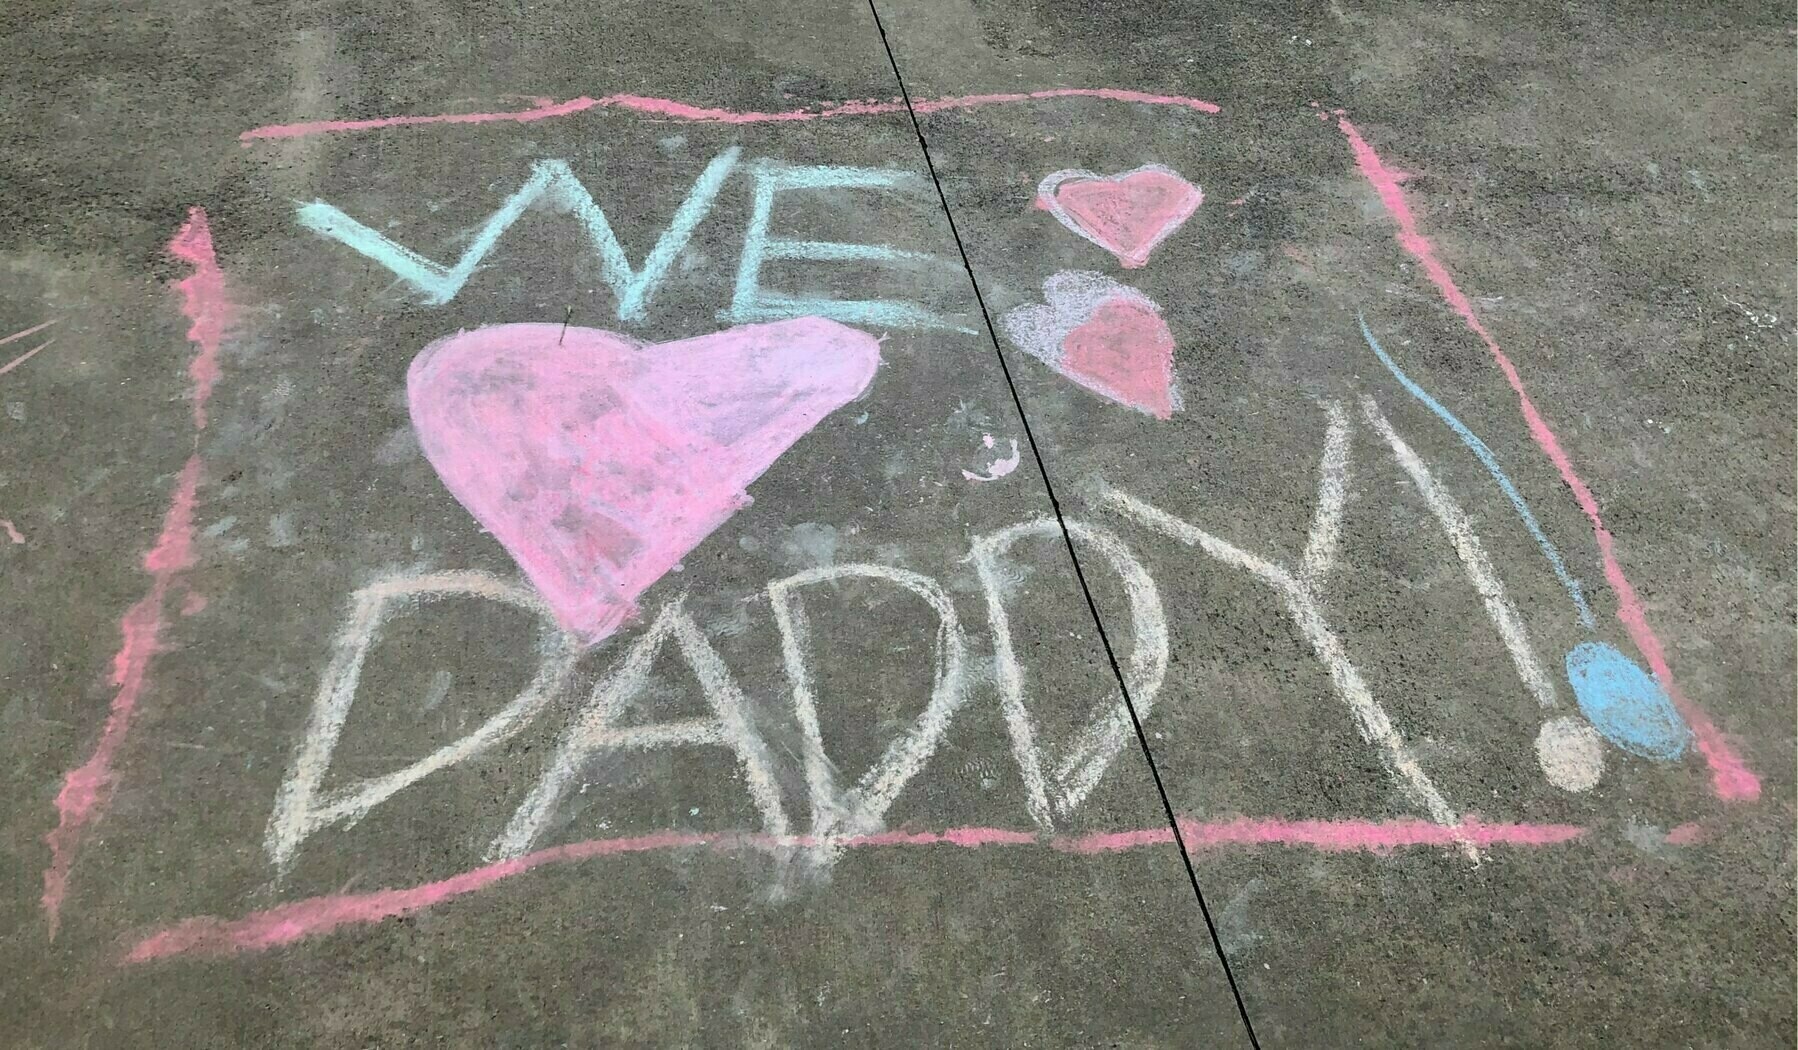 WE
DADDY!